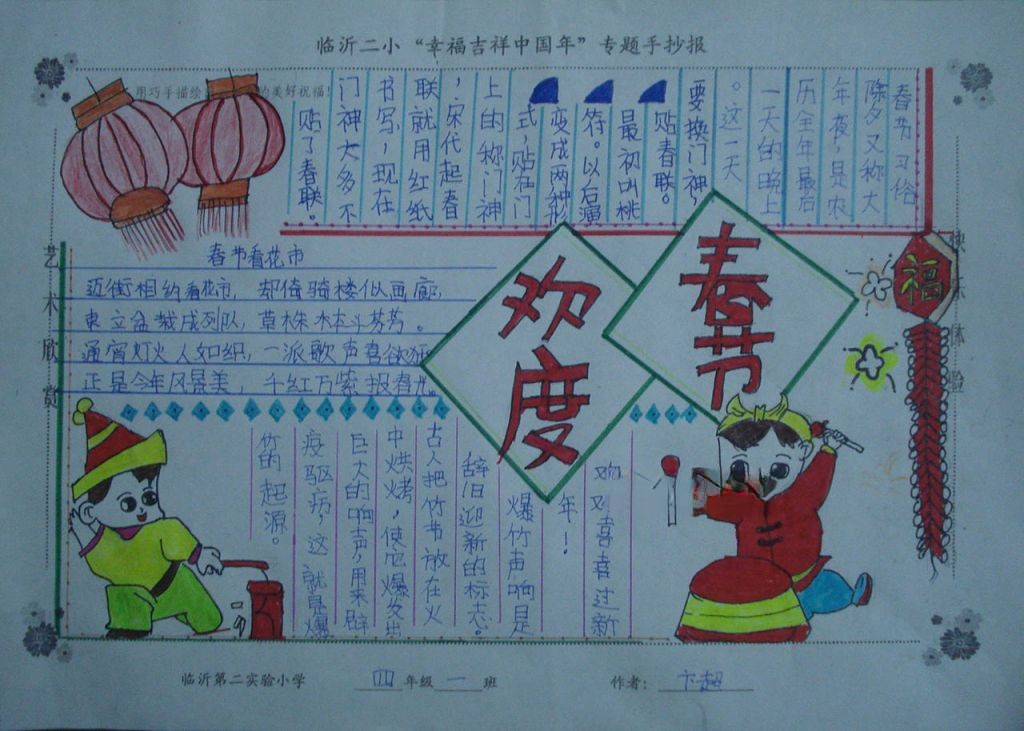 临沂二小“幸福吉祥中国年”专题手抄报
用巧手描绘
的美好祝福！
春节习俗
除夕又称大
年夜，是农
历全年最后
一天的晚上
。这一天
要换门神，
贴春联。
最初叫桃
符。以后演
变成两种形
式，贴在门
上的称门神
，宋代起春
联就用红纸
书写，现在
门神大多不
贴了春联。
艺术欣赏
春节看花市
迈街相约看花市，却倚骑楼似画廊，
束立盆栽成列队，草株木本斗芬芳。
通宵灯火人如织，一派歌声喜欲狂
正是今年风景美，千红万紫报春光
欢度
春节
福
乐体验
喜喜过新
年！
爆竹声响是
辞旧迎新的标志。
古人把竹节放在火
中烘烤，使它爆发出
巨大的响声，用来辟
疫驱病，这就是爆
竹的起源。
临沂第二实验小学 四年级一班 作者：卞超